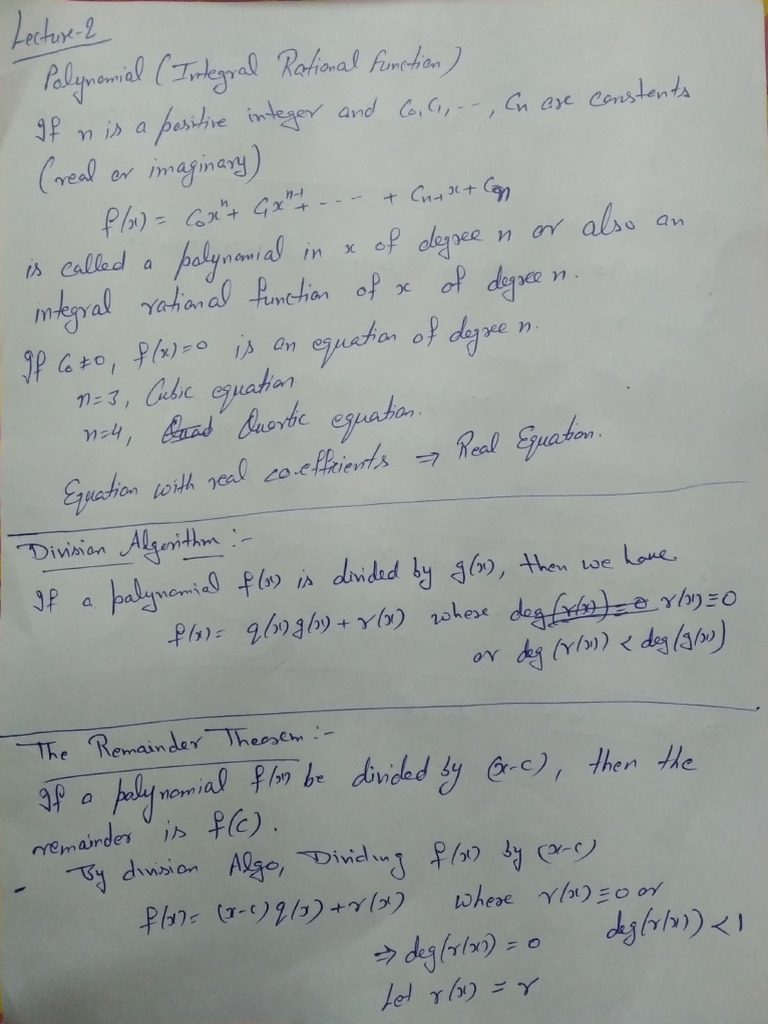 Lecture-2
Polynomial (Integral Rational function)
If n is a positive integer and C₀, C₁, --, Cn are constents
(real or imaginary)
f(x) = C₀xⁿ + C₁xⁿ⁻¹ + ---- + Cn-1 x + Cn
is called a polynomial in x of degree n or also an
integral rational function of x of degree n.
If C₀ ≠ 0, f(x) = 0 is an equation of degree n.
n=3, Cubic equation
n=4, Quartic equation.
Equation with real co-efficients ⇒ Real Equation.
Division Algorithm :-
If a polynomial f(x) is divided by g(x), then we have
f(x) = q(x) g(x) + r(x) where r(x) ≡ 0
or deg (r(x)) < deg (g(x))
The Remainder Theorem :-
If a polynomial f(x) be divided by (x-c), then the
remainder is f(c).
- By division Algo, Dividing f(x) by (x-c)
f(x) = (x-c) q(x) + r(x) where r(x) ≡ 0 or
⇒ deg(r(x)) = 0 deg(r(x)) < 1
Let r(x) = r